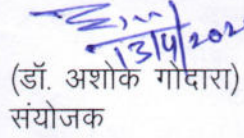 13/4/202
(डॉ. अशोक गोदारा)
संयोजक